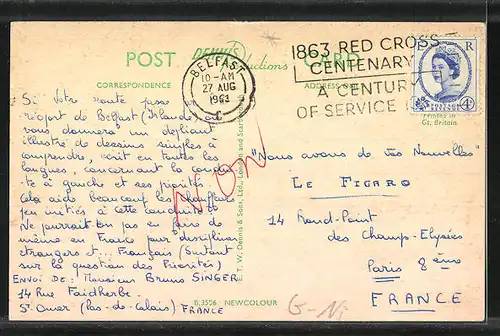 POST CARD
DENNIS
Productions
CORRESPONDENCE
ADDRESS ONLY
BELFAST
10-AM
27 AUG
1963
C
1863 RED CROSS
CENTENARY
A CENTURY
OF SERVICE
E R
4D
Printed in
Gt. Britain
Si Votre route passe
à l'aéroport de Belfast (Irlande) on
vous donnera un dépliant
illustré de dessins simples à
comprendre, écrit en toutes les
langues, concernant la conduite
à gauche et ses priorités.
Cela aide beaucoup les chauffeurs
peu initiés à cette conduite.
Ne pourrait-on pas en faire de
même en France pour discipliner
étrangers et... Français (Surtout
sur la question des Priorités)
ENVOI DE: Monsieur Bruno SINGER
14 Rue Faidherbe
St Omer (Pas-de-Calais) FRANCE
NON
E. T. W. Dennis & Sons, Ltd., London and Scarborough
"Nous avons de vos Nouvelles"
LE FIGARO
14 Rond-Point
des Champ-Elysées
Paris 8ème
FRANCE
B.3506 NEWCOLOUR